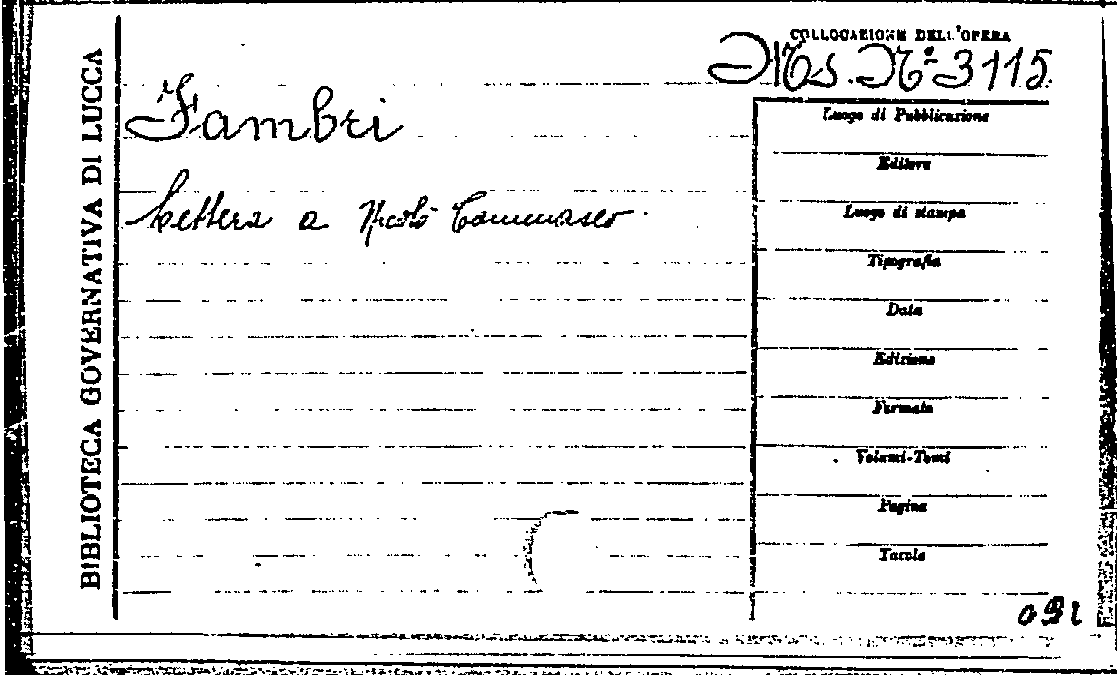 BIBLIOTECA GOVERNATIVA DI LUCCA
COLLOCAZIONE DELL'OPERA
Ms. N.º 3115.
Fambri
Lettera a Nicolò Tommaseo.
Luogo di Pubblicazione
Editore
Luogo di stampa
Tipografia
Data
Edizione
Formato
Volumi-Tomi
Pagine
Tavole